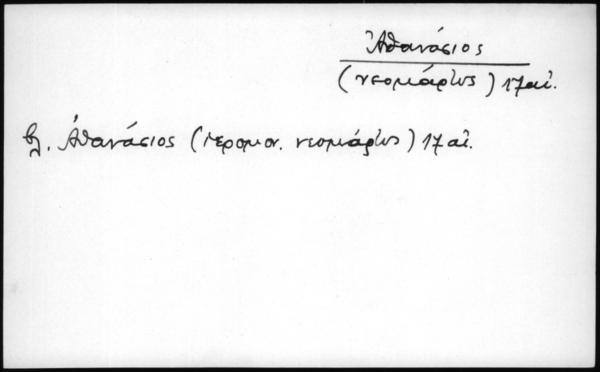 Ἀθανάσιος
(νεομάρτυς) 17 αἰ.
βλ. Ἀθανάσιος (ιερομον. νεομάρτυς) 17 αἰ.